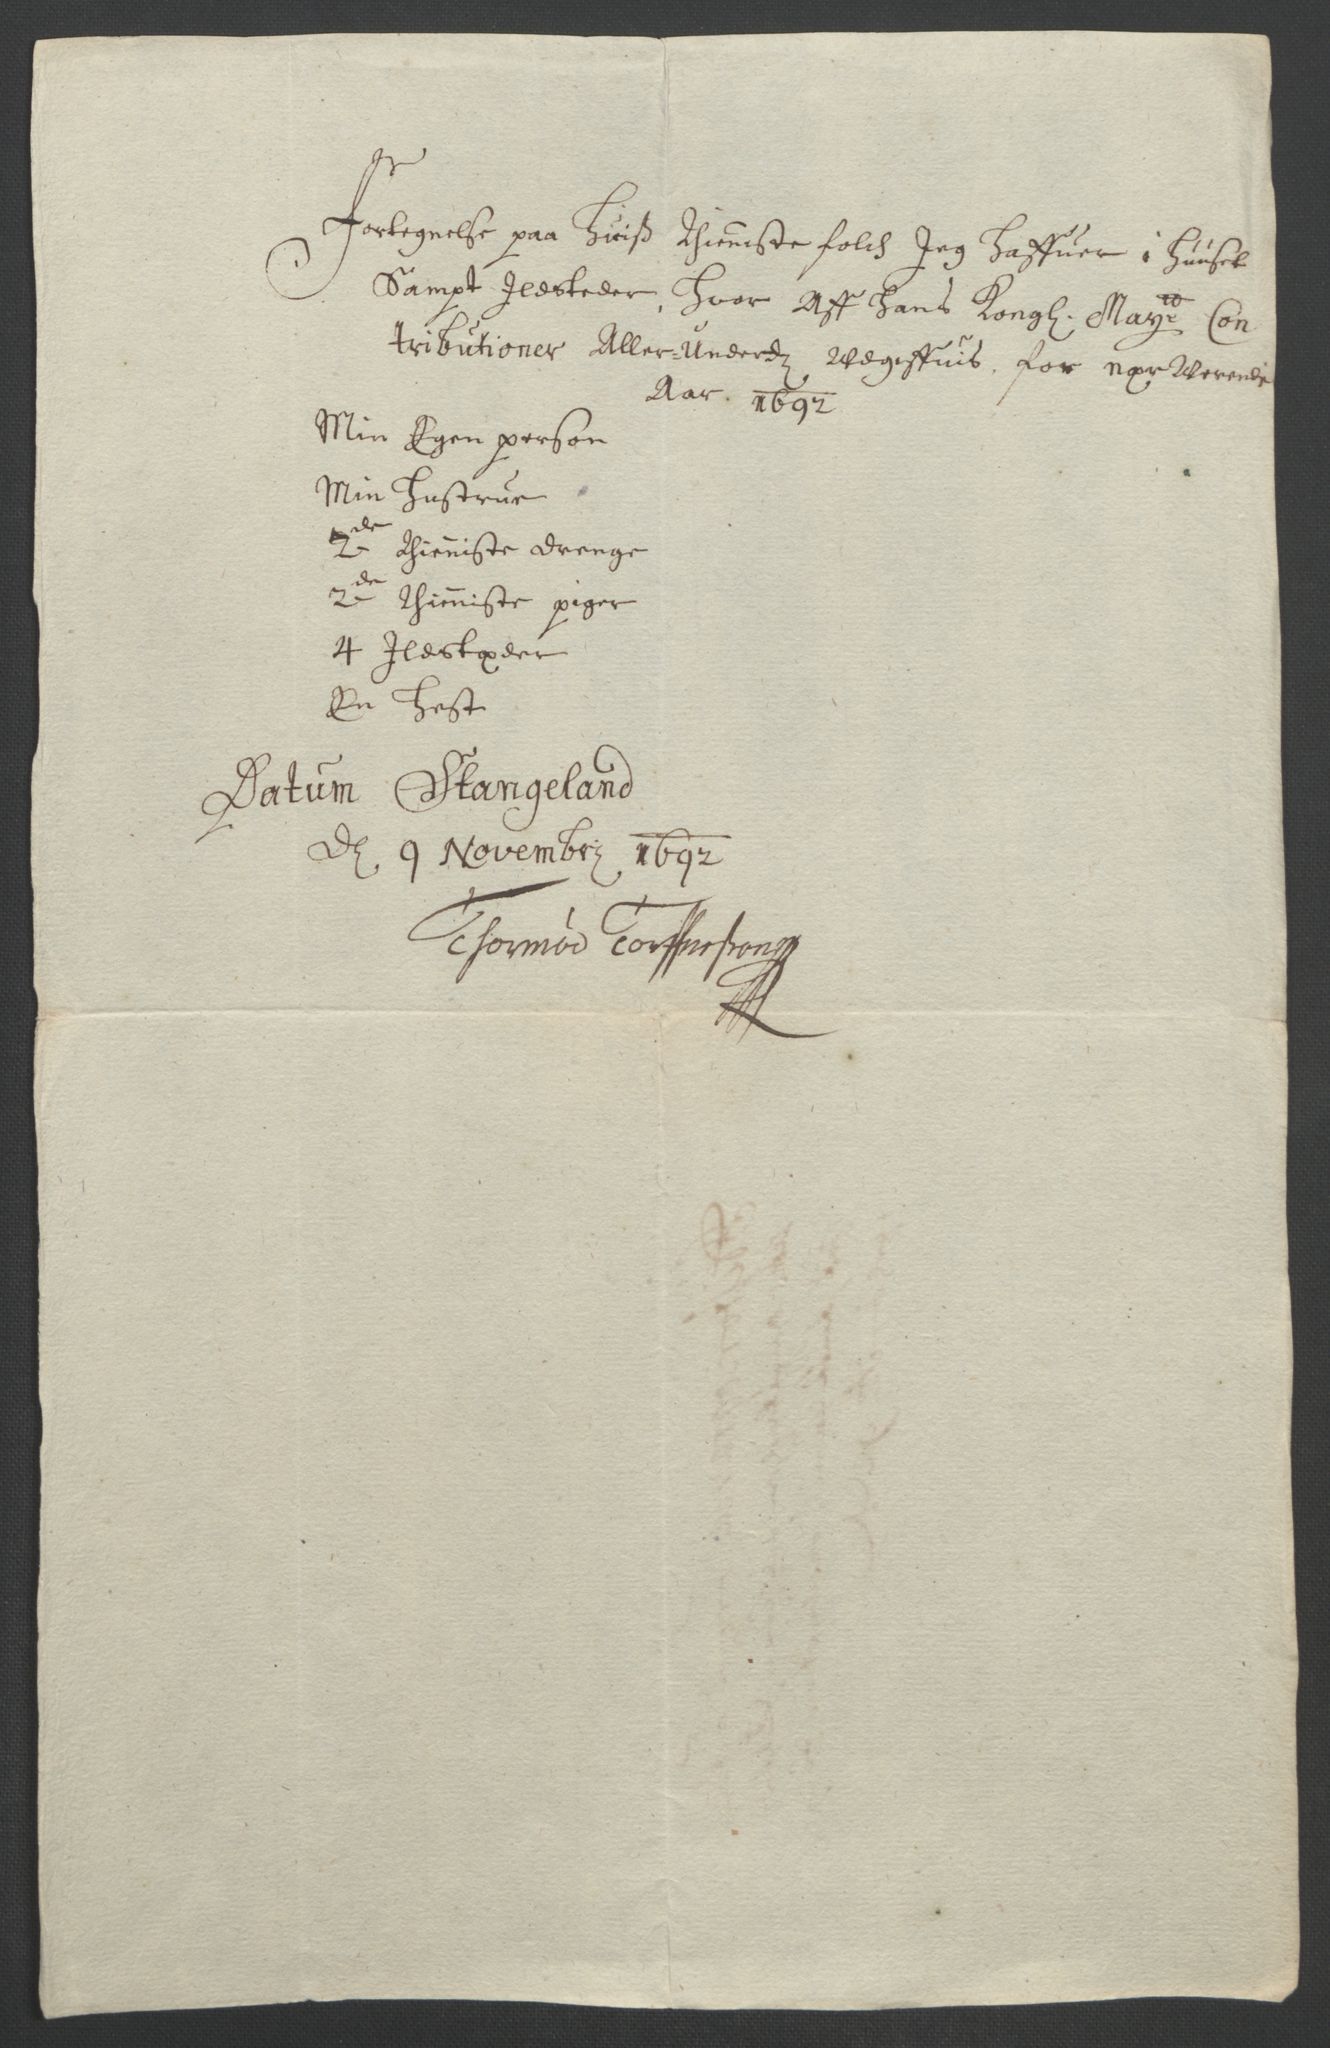 Fortegnelse paa huiß thieniste folch Jeg haffuer i huuset
Sampt Ildsteder, hvor Aff hans Kongl. Mayts Con
tributioner Aller-Underd. Udgiffuis, for nærWerende
Aar 1692
Min Egen person
Min hustrue
2de thieniste drenge
2de thieniste piger
4 Ildstæder
En hest
Datum Stangeland
D. 9 Novembr. 1692
Thormod Torffuesøn